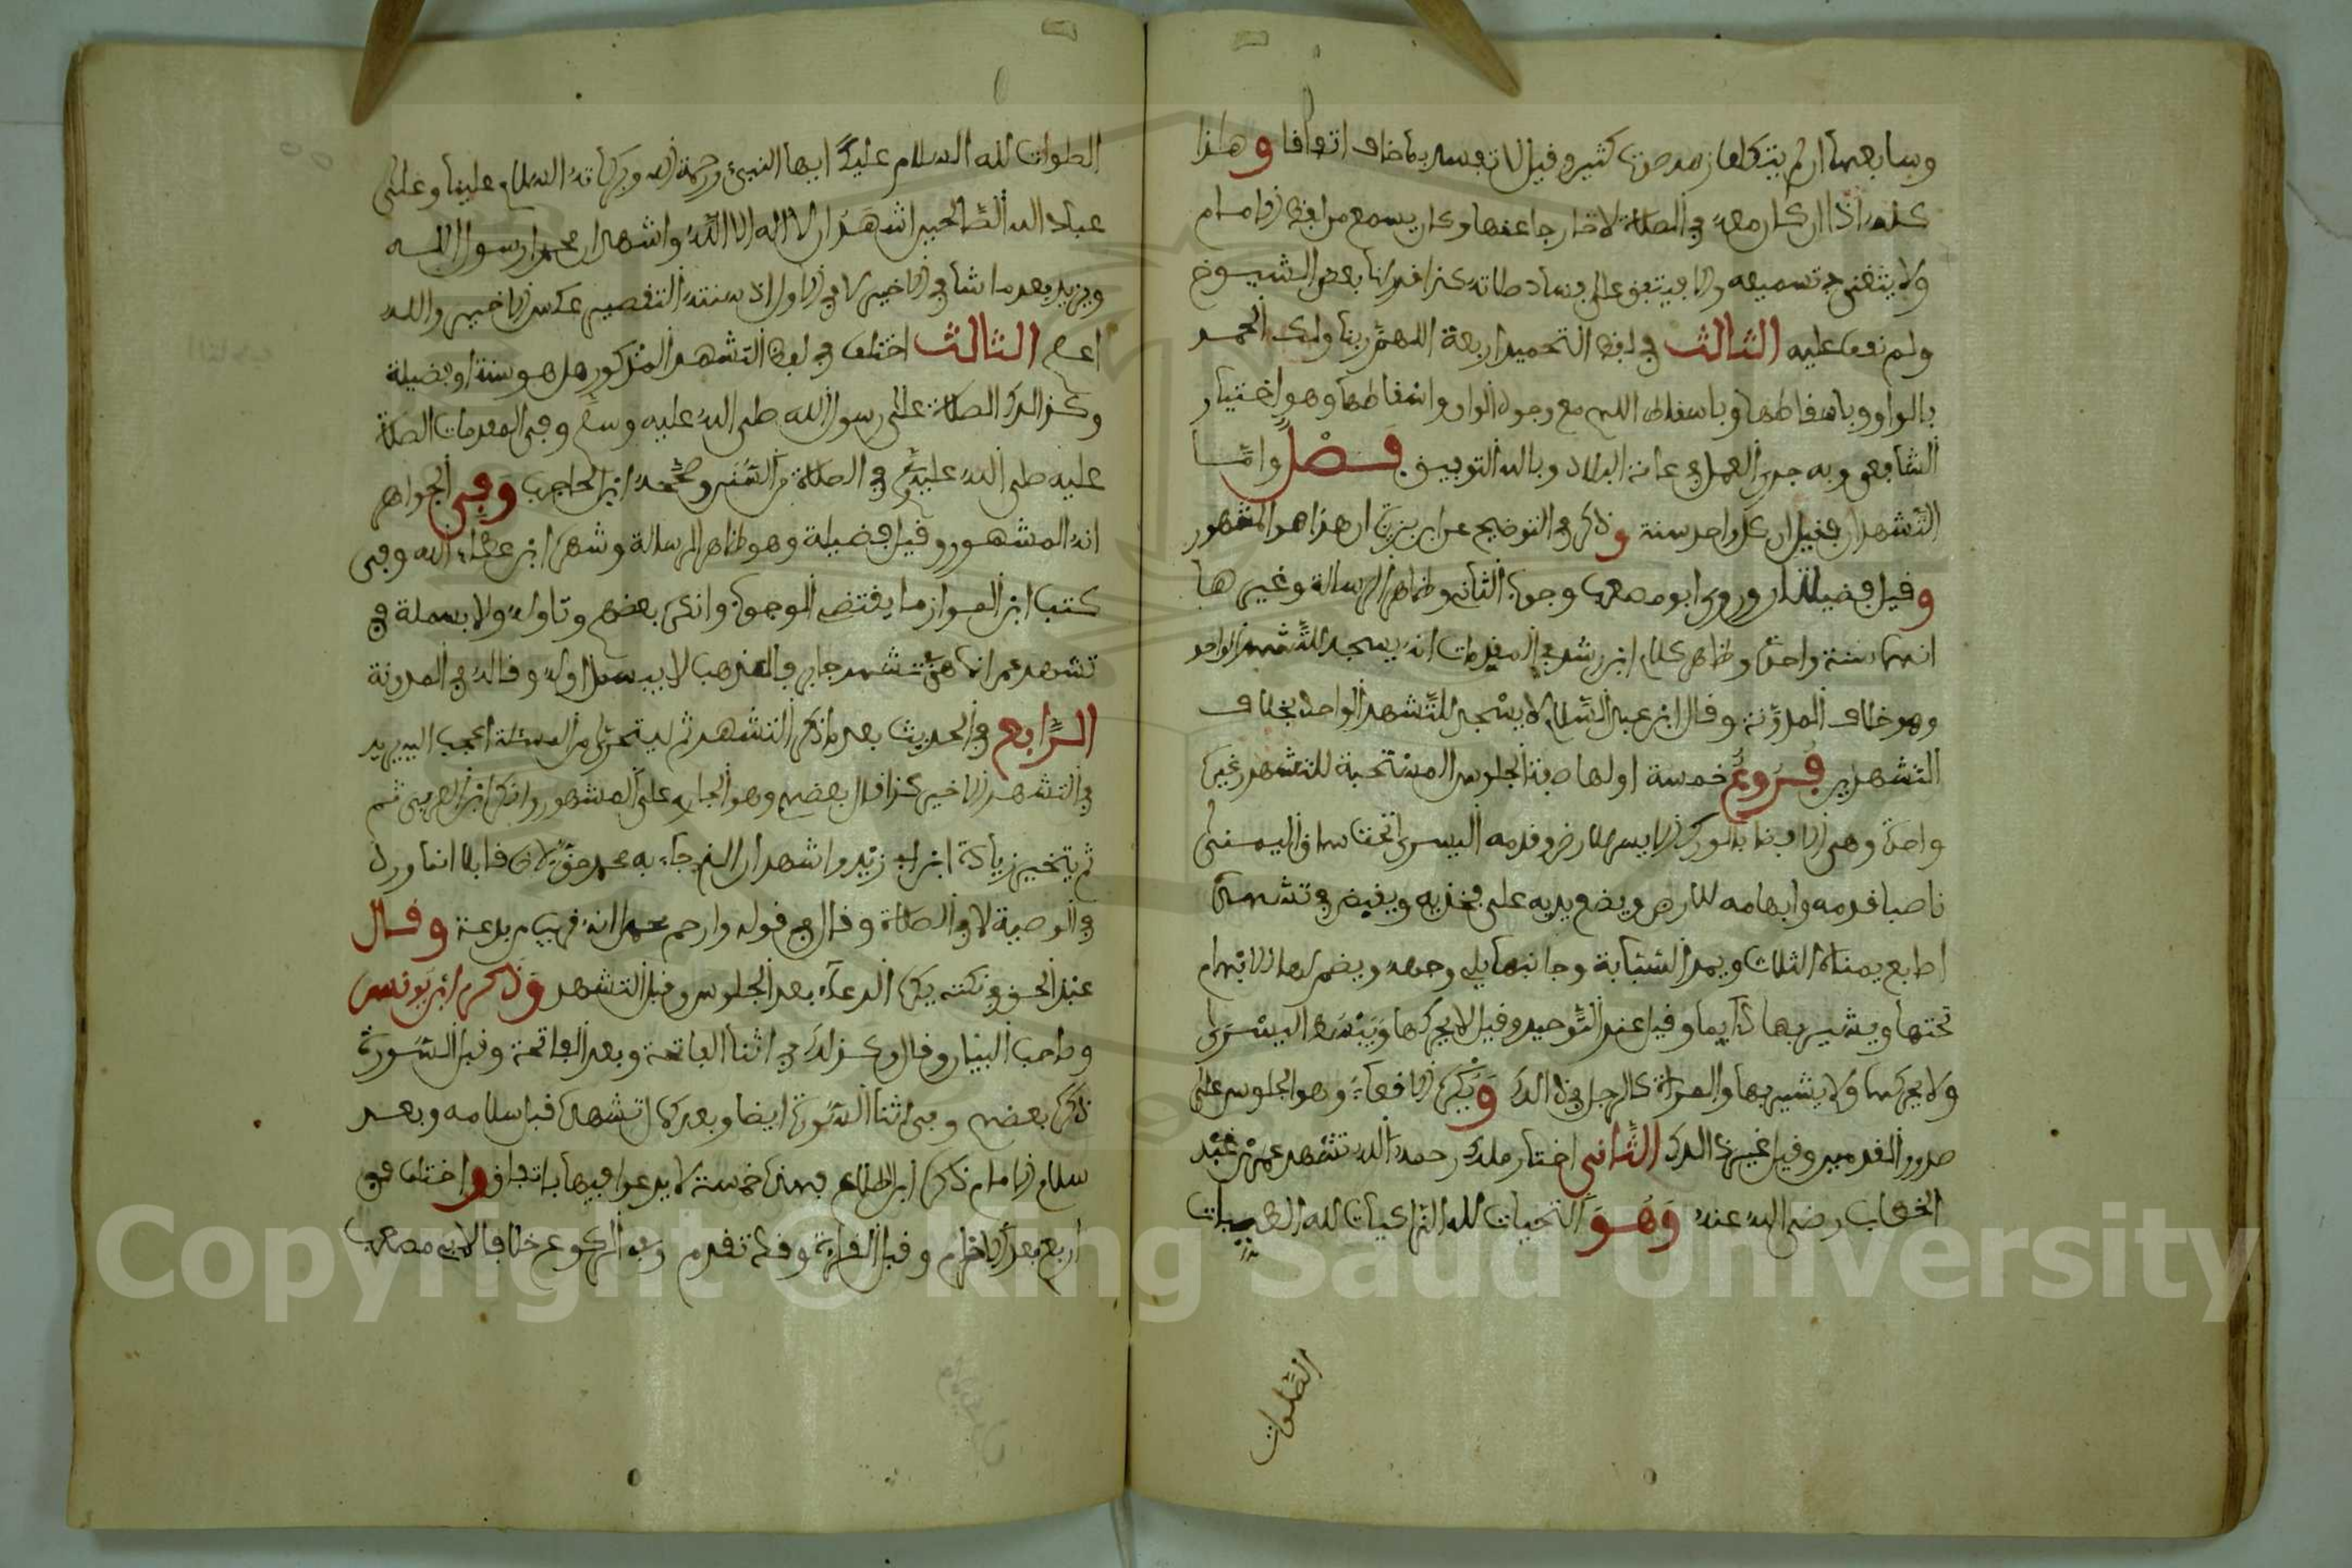 كله اذا كان معه في الصلاة لا خارجا عنها وكان يسمع من لفظ الامام
ولا يتغنى في تسميعه والا فيتفق على فساد صلاته كذا قيدنا بعض الشيوخ
ولم نقف عليه الثالث في لفظ التحميد اربعة اللهم ربنا ولك الحمد
بالواو وباسقاطها وباسقاط اللهم مع وجود الواو واسقاطها وهو اختيار
الشافعي وبه جرى العمل في عامة البلاد وبالله التوفيق فصل واما
التشهدان فقيل ان كل واحد سنة وذكر في التوضيح عن ابن بزيزة ان هذا هو المشهور
وقيل فضيلتان وروى ابو مصعب وجوب الثاني وظاهر الرسالة وغيرها
انهما سنة واحدة وظاهر كلام ابن رشد في المقدمات انه يسجد للتشهد الواحد
وهو خلاف المدونة وقال ابن عبد السلام لا يسجد للتشهد الواحد بخلاف
التشهدين فروع خمسة اولها صفة الجلوس المستحبة للتشهد وغيره
واحدة وهي الافضا بالورك الايسر للارض وقدمه اليسرى تحت ساق اليمنى
ناصبا قدمه وابهامه للارض ويضع يديه على فخذيه ويقبض في تشهده
اصابع يمناه الثلاث ويمد السبابة وجانبها يلي وجهه ويضم لها الابهام
تحتها ويشير بها دايما وقيل عند التوحيد وقيل لا يحركها ويبسط اليسرى
ولا يحركها ولا يشير بها والمراة كالرجل في ذالك ويكره الاقعاء وهو الجلوس على
صدور القدمين وقيل غير ذالك الثاني اختار ملك رحمه الله تشهد عمر بن
الخطاب رضي الله عنه وهو التحيات لله الزاكيات لله الطيبات
الصلوات
الصلوات لله السلام عليك ايها النبيء ورحمة الله وبركاته السلام علينا وعلى
عباد الله الصالحين اشهد ان لا اله الا الله واشهد ان محمدا رسول الله
ويزيد بعد ما شا في الاخير لا في الاول اذ سنته التقصير عكس الاخير والله
اعلم الثالث اختلف في لفظ التشهد المذكور هل هو سنة او فضيلة
وكذالك الصلاة على رسول الله صلى الله عليه وسلم وفي المقدمات الصلاة
عليه صلى الله عليه وسلم في الصلاة من السنن وصححه ابن الحاجب وفي الجواهر
انه المشهور وقيل فضيلة وهو ظاهر الرسالة وشهره ابن عطاء الله وفي
كتب ابن المواز ما يقتضي الوجوب وانكره بعضهم وتاوله ولا بسملة في
تشهد عمر انما هي تشهد جابر فالمذهب لا يبسمل اوله وقاله في المدونة
الرابع في الحديث بعد ما ذكر التشهد ثم ليتحرى من المسئلة اعجب اليه يريد
في التشهد الاخير كذا قال بعضهم وهو الجاري على المشهور وانكر ابن العربي
زيادة ابن ابي زيد واشهد ان الذي جاء به محمد حق قايلا انما ورد
في الوصية لا في الصلاة وقال في قوله وارحم محمدا انه قريب من بدعة وقال
عبد الحق في نكته يكره الدعاء بعد الجلوس وقبل التشهد وذكره ابن يونس
وصاحب البيان وقال وكذلك في اثنا الفاتحة وبعد الفاتحة وقبل السورة
ذكره بعضهم وفي اثنا السورة ايضا وبعد كمال تشهده قبل سلامه وبعد
سلام الامام ذكره ابن الطلاع فهذه خمسة لا يدعوا فيها باتفاق واختلف في
اربع بعد الاحرام وقبل القراءة وقد تقدم وفي الركوع خلافا لابي مصعب